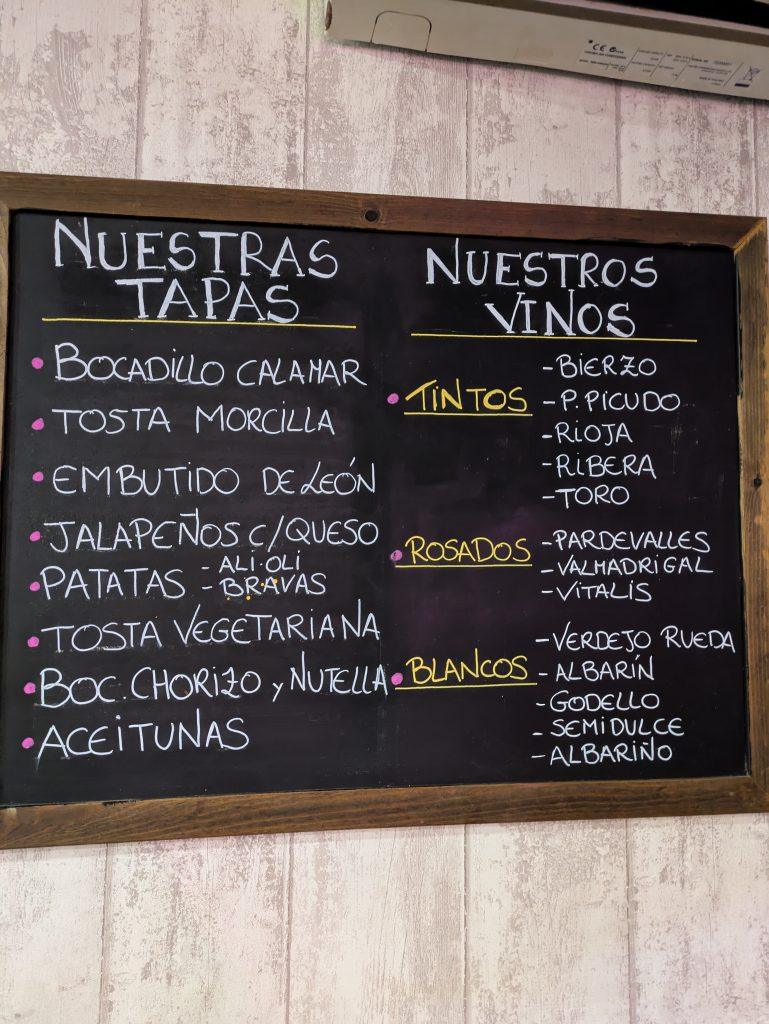 CE
NUESTRAS
TAPAS
BOCADILLO CALAMAR
TOSTA MORCILLA
EMBUTIDO DE LEÓN
JALAPEÑOS C/QUESO
PATATAS - ALI.OLI
- BRAVAS
TOSTA VEGETARIANA
BOC. CHORIZO y NUTELLA
ACEITUNAS
NUESTROS
VINOS
TINTOS
- BIERZO
- P. PICUDO
- RIOJA
- RIBERA
- TORO
ROSADOS
- PARDEVALLES
- VALMADRIGAL
- VITALIS
BLANCOS
- VERDEJO RUEDA
- ALBARÍN
- GODELLO
- SEMIDULCE
- ALBARIÑO